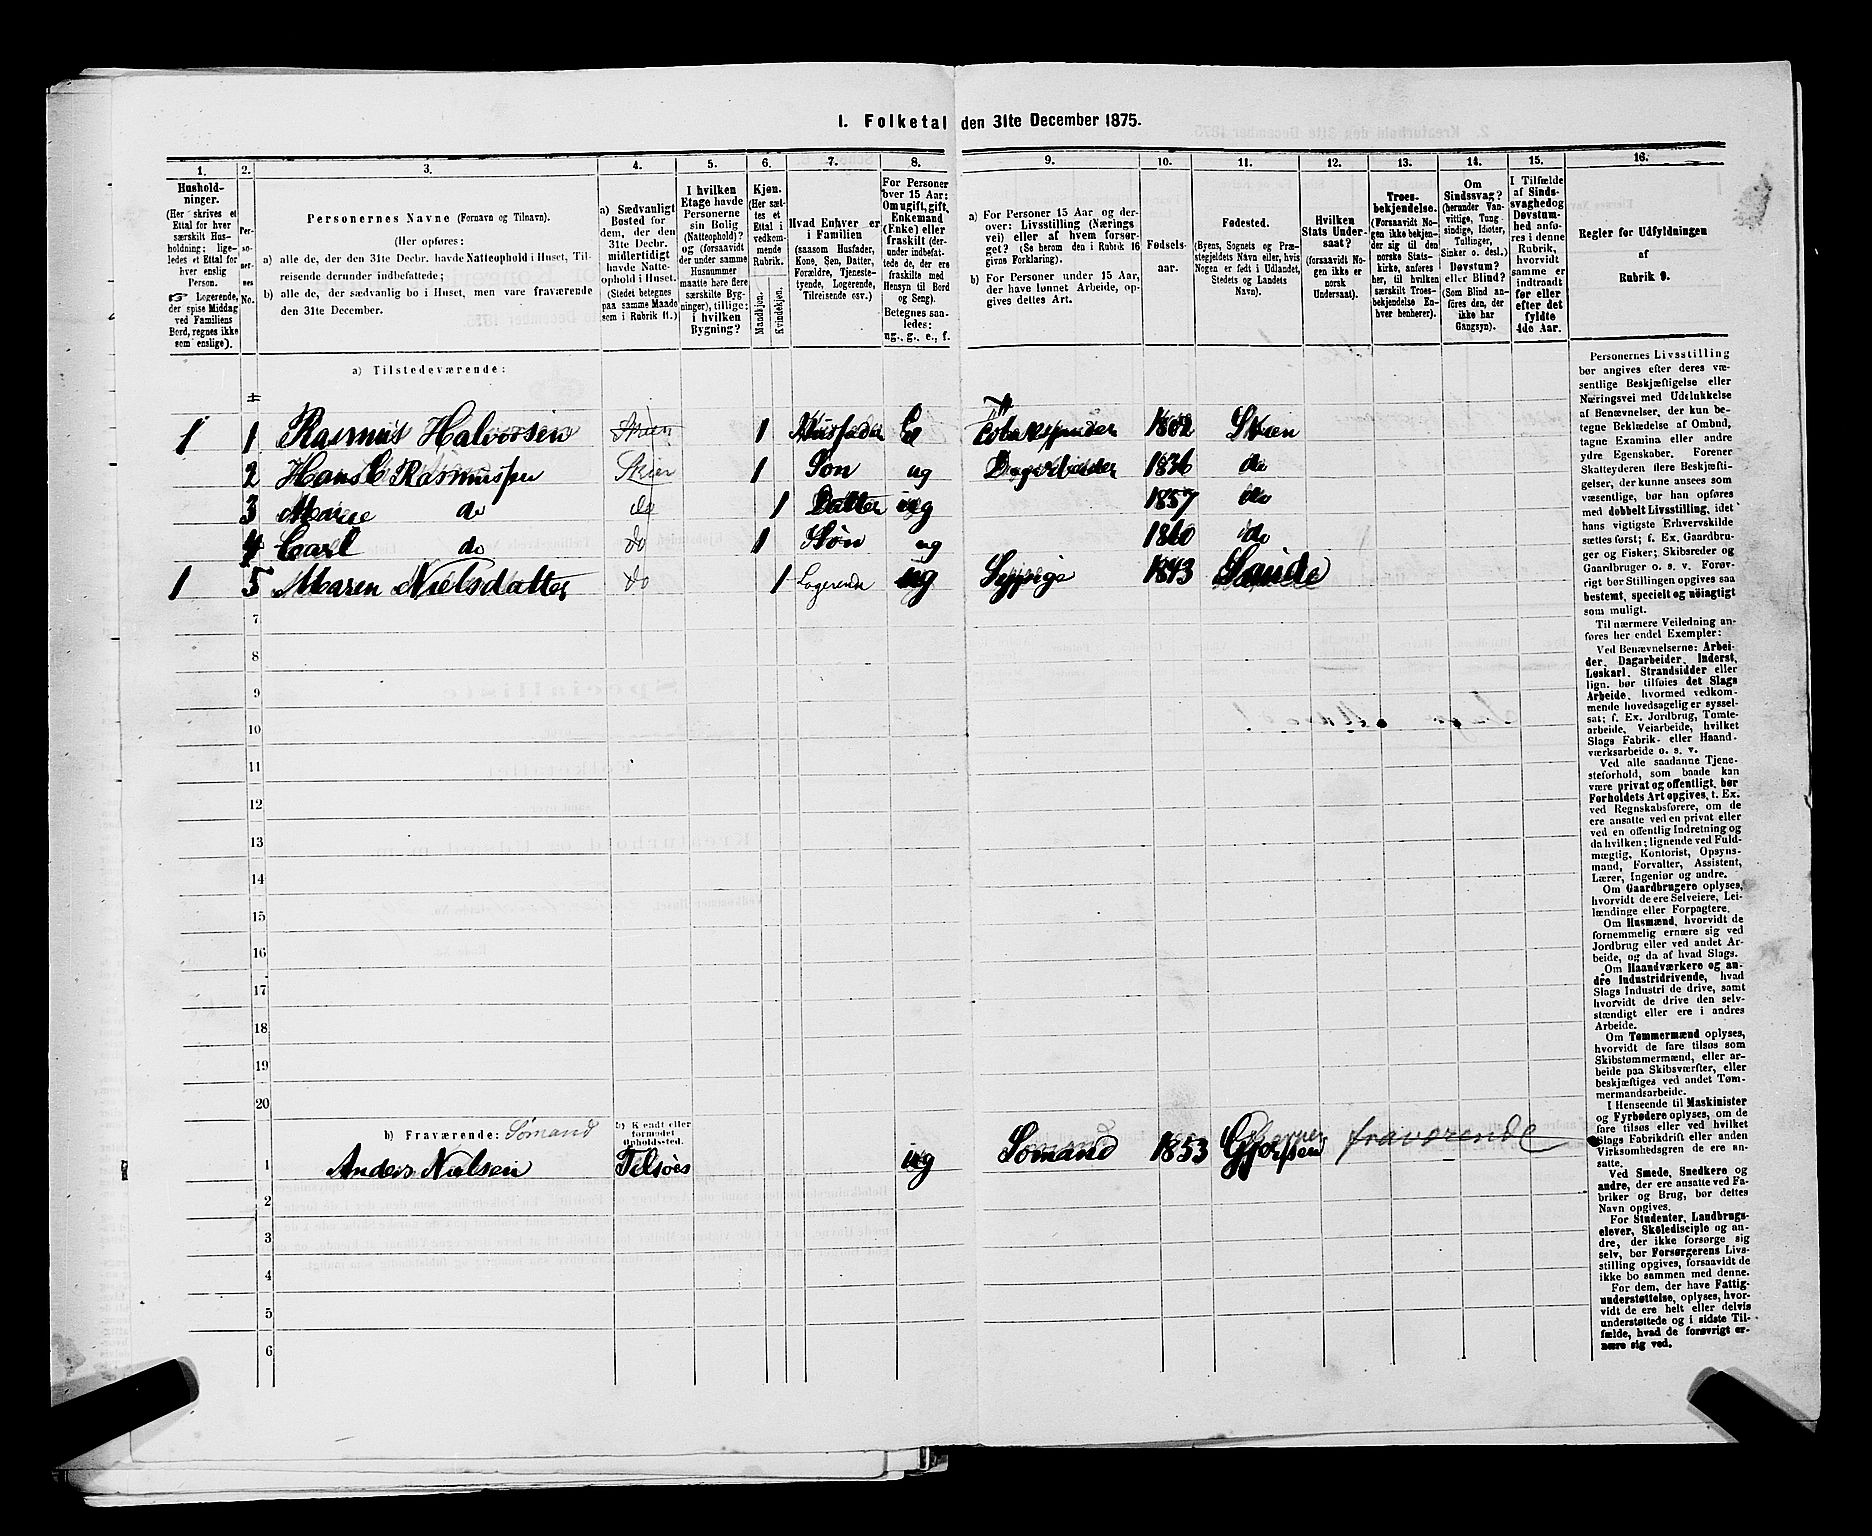 1. Folketal den 31te December 1875.
1. 2. 3. 4. 5. 6. 7. 8. 9. 10. 11. 12. 13. 14. 15. 16.
Hushold-
ninger.
(Her skrives et
Ettal for hver
særskilt Hus-
holdning; lige-
ledes et Ettal for
hver enslig
Person.
☞ Logerende,
der spise Middag
ved Familiens
Bord, regnes ikke
som enslige).
Per-
so-
ner-
nes
No.
Personernes Navne (Fornavn og Tilnavn).
(Her opføres:
a) alle de, der den 31te Decbr. havde Natteophold i Huset, Til-
reisende derunder indbefattede;
b) alle de, der sædvanlig bo i Huset, men vare fraværende
den 31te December.
a) Sædvanligt
Bosted for
dem, der den
31te Decbr.
midlertidigt
havde Natte-
ophold i Huset.
(Stedet betegnes
paa samme Maade
som i Rubrik 11.)
I hvilken
Etage havde
Personerne
sin Bolig
(Natteophold)?
og (forsaavidt
der under samme
Husnummer
maatte høre flere
særskilte Byg-
ninger), tillige:
i hvilken
Bygning?
Kjøn.
(Her sæt-
tes et
Ettal i
vedkom-
mende
Rubrik.
Mandkjøn.
Kvindekjøn.
Hvad Enhver er
i Familien
(saasom Husfader,
Kone, Søn, Datter,
Forældre, Tjeneste-
tyende, Logerende,
Tilreisende osv.)
For Personer
over 15 Aar:
Om ugift, gift,
Enkemand
(Enke) eller
fraskilt (der-
under indbefat-
tede de, der ere
fraskilte med
Hensyn til Bord
og Seng).
Betegnes saa-
ledes:
ug., g., e., f.
a) For Personer 15 Aar og der-
over: Livsstilling (Nærings-
vei) eller af hvem forsør-
get? (Se herom den i Rubrik 16
givne Forklaring).
b) For Personer under 15 Aar,
der have lønnet Arbeide, op-
gives dettes Art.
Fødsels-
aar.
Fødested.
(Byens, Sognets og Præ-
stegjeldets Navn eller, hvis
Nogen er født i Udlandet,
Stedets og Landets
Navn).
Hvilken
Stats Under-
saat?
(forsaavidt No-
gen ikke er
norsk
Undersaat).
Troes-
bekjendelse.
(Forsaavidt No-
gen ikke bekjen-
der sig til den
norske Stats-
kirke, anføres
her, til hvilken
særskilt Troes-
bekjendelse En-
hver henhører).
Om
Sindssvag?
(herunder Van-
vittige, Tung-
sindige, Idioter,
Tullinger,
Sinker o. desl.)
Døvstum?
eller Blind?
(Som Blind an-
føres den, der
ikke har
Gangsyn).
I Tilfælde
af Sinds-
svaghed og
Døvstum-
hed anfø-
res i denne
Rubrik,
hvorvidt
samme er
indtraadt
før eller
efter det
fyldte
4de Aar.
Regler for Udfyldningen
af
Rubrik 9.
a) Tilstedeværende:
1 1 Rasmus Halvorsen Skien 1 Husfader E Tobakspinder 1802 Skien
2 Hans C Rasmussen Skien 1 Søn ug Dagarbeider 1836 do
3 Marie do do 1 Datter ug 1857 do
4 Carl do do 1 Søn ug 1860 do
1 5 Maren Nielsdatter do 1 Logerende ug Sypige 1843 Sande
7
8
9
10
11
12
13
14
15
16
17
18
19
20
b) Fraværende: Sømand
b) Kjendt eller
formodet
Opholdssted.
1 Anders Nielsen Tilsøes ug Sømand 1853 Gjerpen fraværende
2
3
4
5
6
Personernes Livsstilling
bør angives efter deres væ-
sentlige Beskjæftigelse eller
Næringsvei med Udelukkelse
af Benævnelser, der kun be-
tegne Beklædelse af Ombud,
tagne Examina eller andre
ydre Egenskaber. Forener
Skatteyderen flere Beskjæfti-
gelser, der kunne ansees som
væsentlige, bør han opføres
med dobbelt Livsstilling, idet
hans vigtigste Erhvervskilde
sættes først; f. Ex. Gaardbru-
ger og Fisker; Skibsreder og
Gaardbruger o. s. v. Forøv-
rigt bør Stillingen opgives saa
bestemt, specielt og nöiagtigt
som muligt.
Til nærmere Veiledning an-
føres her endel Exempler:
Ved Benævnelserne: Arbei-
der, Dagarbeider, Inderst,
Løskarl, Strandsidder eller
lign. bør tilføies det Slags
Arbeide, hvormed vedkom-
mende hovedsagelig er syssel-
sat; f. Ex. Jordbrug, Tomte-
arbeide, Veiarbeide, hvilket
Slags Fabrik- eller Haand-
værksarbeide o. s. v.
Ved alle saadanne Tjene-
steforhold, som baade kan
være privat og offentligt, bør
Forholdets Art opgives, t. Ex.
ved Regnskabsførere, om de
ere ansatte ved en privat eller
ved en offentlig Indretning og
da hvilken; lignende ved Fuld-
mægtig, Kontorist, Opsyns-
mand, Forvalter, Assistent,
Lærer, Ingeniør og andre.
Om Gaardbrugere oplyses,
hvorvidt de ere Selveiere, Lei-
lændinge eller Forpagtere.
Om Husmænd, hvorvidt de
fornemmelig ernære sig ved
Jordbrug eller ved andet Ar-
beide, og da af hvad Slags.
Om Haandværkere og an-
dre Industridrivende, hvad
Slags Industri de drive, samt
hvorvidt de drive den selv-
stændigt eller ere i andres
Arbeide.
Om Tømmermænd oplyses,
hvorvidt de fare tilsøs som
Skibstømmermænd, eller ar-
beide paa Skibsværfter, eller
beskjæftiges ved andet Tøm-
mermandsarbeide.
I Henseende til Maskinister
og Fyrbødere oplyses, om de
fare tilsøs eller ved hvilket
Slags Fabrikdrift eller anden
Virksomhedsgren de ere an-
satte.
Ved Smede, Snedkere og
andre, der ere ansatte ved Fa-
briker og Brug, bør dettes
Navn opgives.
For Studenter, Landbrugs-
elever, Skoledisciple og an-
dre, der ikke forsørge sig
selv, bør Forsørgerens Livs-
stilling opgives, forsaavidt de
ikke bo sammen med denne.
For dem, der have Fattig-
understøttelse, oplyses, hvor-
vidt de ere helt eller delvis
understøttede og i sidste Til-
fælde, hvad de forøvrigt er-
nære sig ved.